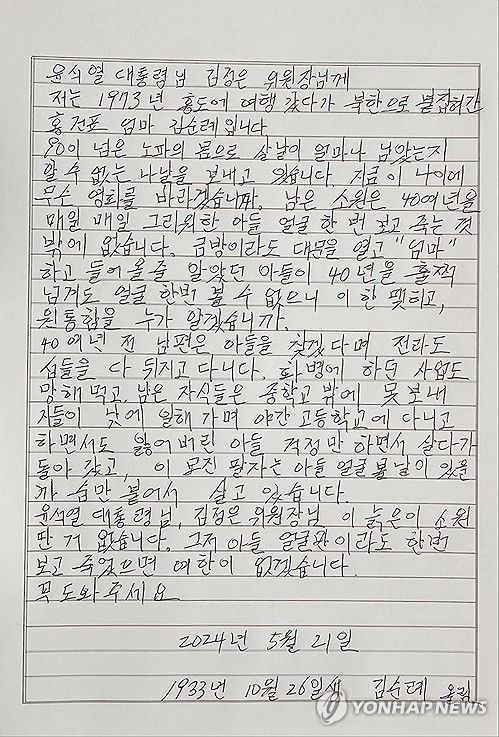 윤석열 대통령님 김정은 위원장님께
저는 1973년 홍도에 여행 갔다가 북한으로 붙잡혀간
홍건표 엄마 김순례입니다
90이 넘은 노파의 몸으로 살날이 얼마나 남았는지
알 수 없는 나날을 보내고 있습니다. 지금 이 나이에
무슨 영화를 바라겠습니까. 남은 소원은 40여년을
매일 매일 그리워한 아들 얼굴 한 번 보고 죽는 것
밖에 없습니다. 금방이라도 대문을 열고 "엄마"
하고 들어올줄 알았던 아들이 40년을 훌쩍
넘겨도 얼굴 한번 볼 수 없으니 이 한 맺히고,
원통함을 누가 알겠습니까.
40여년 전 남편은 아들을 찾겠다며 전라도
섬들을 다 뒤지고 다니다. 화병에 하던 사업도
망해 먹고, 남은 자식들은 중학교 밖에 못 보내
자들이 낮에 일해 가며 야간 고등학교에 다니고
하면서도 잃어버린 아들 걱정만 하면서 살다가
돌아 갔고, 이 모진 팔자는 아들 얼굴볼 날이 있을
까 숨만 붙어서 살고 있습니다.
윤석열 대통령님, 김정은 위원장님 이 늙은이 소원
딴 거 없습니다. 그저 아들 얼굴 한번이라도
보고 죽었으면 여한이 없겠습니다.
꼭 도와주세요
2024년 5월 21일
1933년 10월 26일생 김순례 올림
YONHAPNEWS